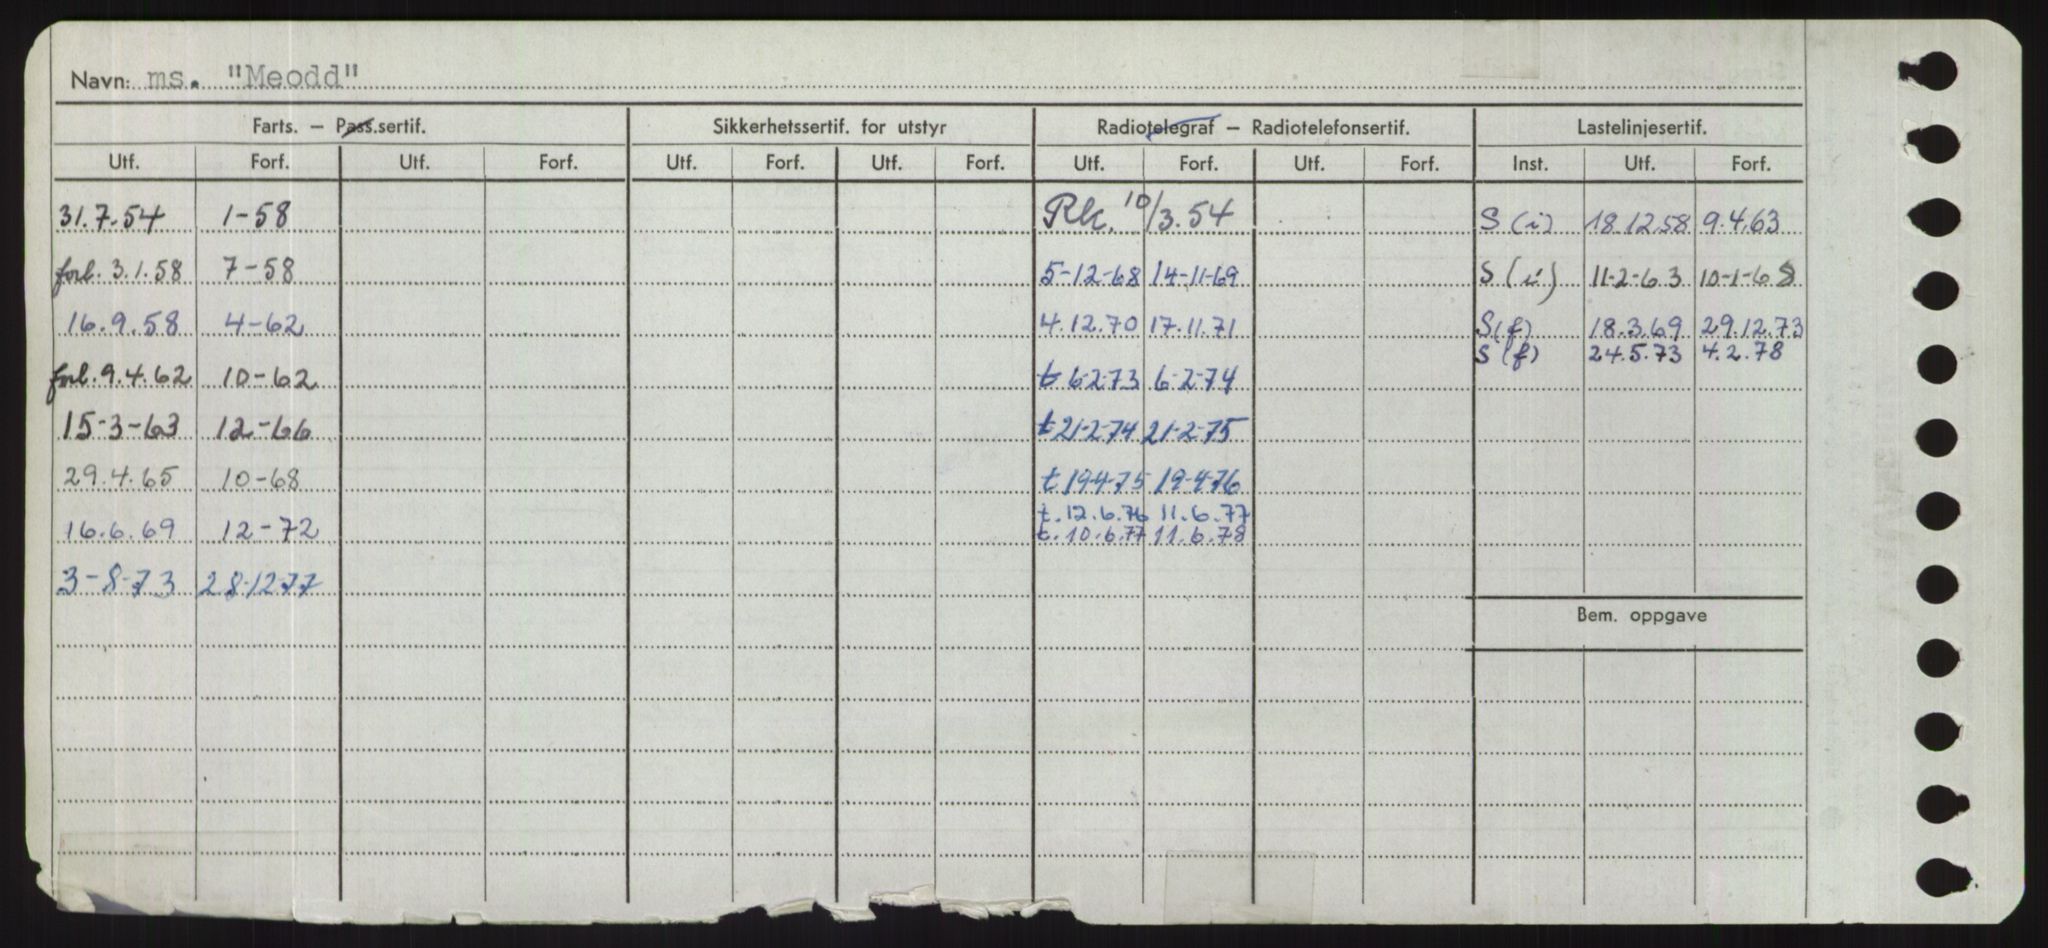 Navn: ms. "Meodd"
Farts. – Pass.sertif. Sikkerhetssertif. for utstyr Radiotelegraf – Radiotelefonsertif. Lastelinjesertif.
Utf. Forf. Utf. Forf. Utf. Forf. Utf. Forf. Utf. Forf. Utf. Forf. Inst. Utf. Forf.
31.7.54 1-58 Rk. 10/3.54 S (i) 18.12.58 9.4.63
forl. 3.1.58 7-58 5-12-68 14-11-69 S (i) 11-2-63 10-1-68
16.9.58 4-62 4.12.70 17.11.71 S(f) 18.3.69 29.12.73
S (f) 24.5.73 4.2.78
forl. 9.4.62 10-62 t 6-2-73 6-2-74
15-3-63 12-66 t 21-2-74 21-2-75
29.4.65 10-68 t 19-4-75 19-4-76
16.6.69 12-72 t. 12.6.76 11.6.77
t. 10.6.77 11.6.78
3-8-73 28-12-77
Bem. oppgave